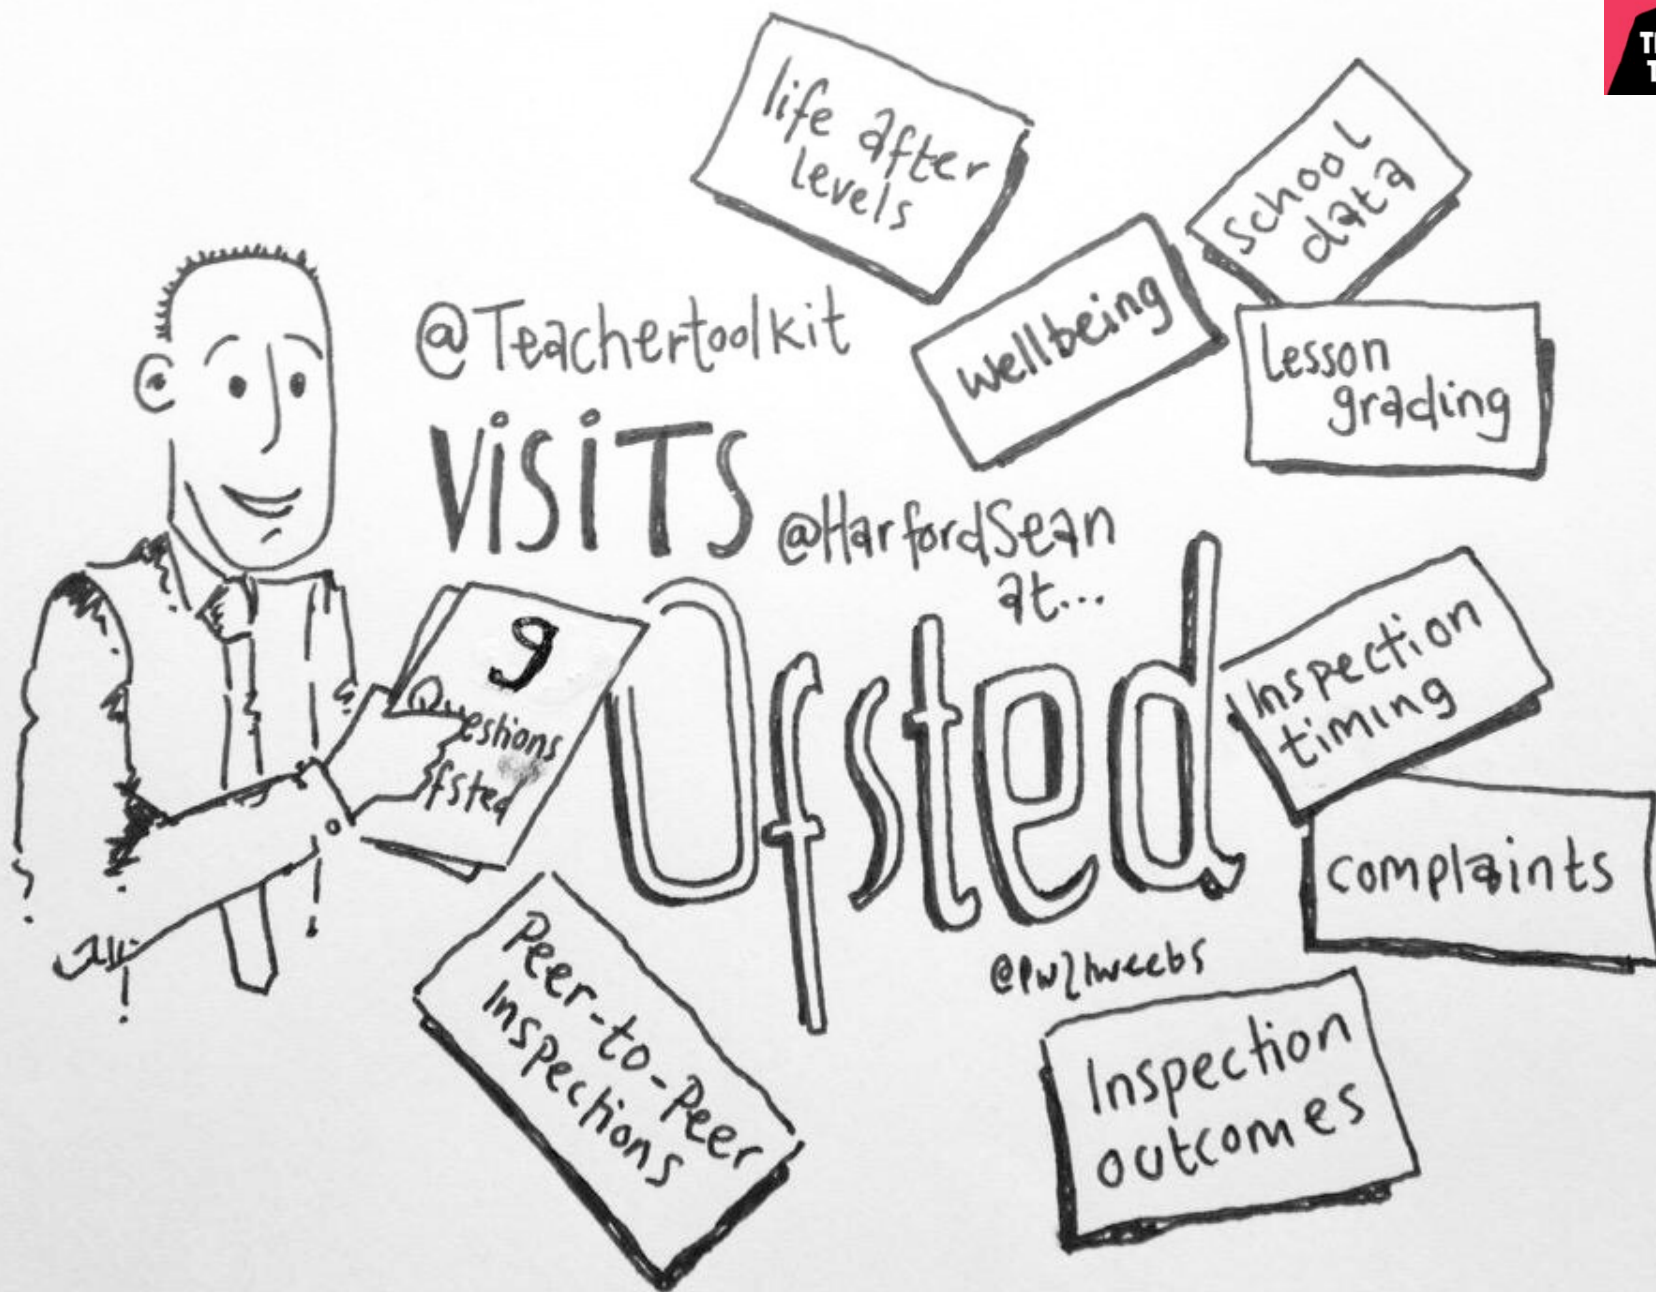 life after
levels
school
data
wellbeing
Lesson
grading
@Teachertoolkit
VISITS
@HarfordSean
at...
Ofsted
9
Questions
fsted
Inspection
timing
complaints
Peer-to-Peer
Inspections
Inspection
outcomes